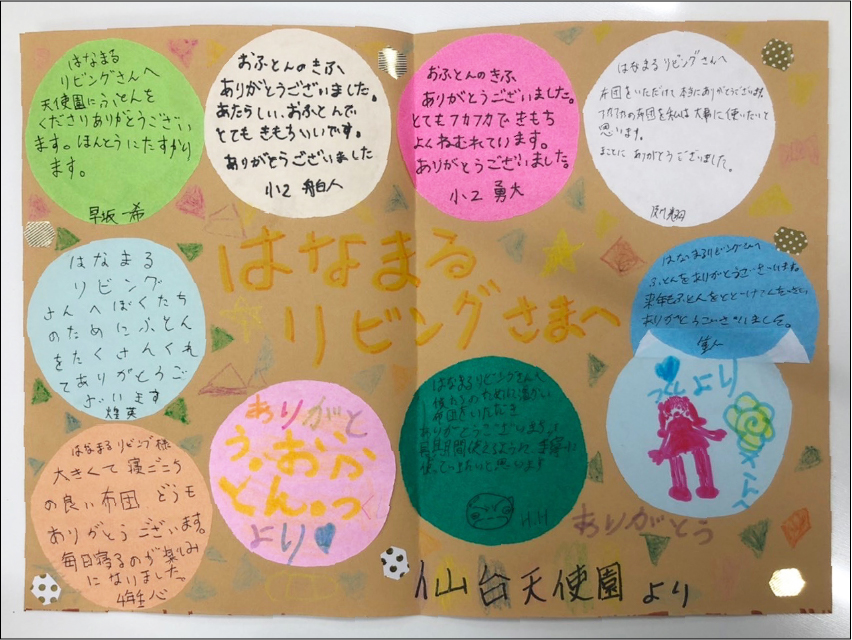 はなまる
リビングさんへ
天使園にふとんを
くださりありがとうござい
ます。ほんとうにたすかり
ます。
早坂 一希
おふとんのきふ
ありがとうございました。
あたらしい、おふとんで
とてもきもちいいです。
ありがとうございました
小2
おふとんのきふ
ありがとうございました。
とてもフカフカできもち
よくねむれています。
ありがとうございました。
小2 勇大
はなまるリビングさんへ
布団をいただけて本当にありがとうございます。
フカフカの布団を私は大事に使いたいと
思います。
まことにありがとうございました。
はなまる
リビングさまへ
はなまる
リビング
さんへぼくたち
のためにふとん
をたくさんくれ
てありがとうご
ざいます
煌英
はなまるリビングさんへ
ふとんをありがとうございます。
来年もふとんをとどけてください。
ありがとうございました。
隼人
はなまるリビング様
大きくて寝ごこち
の良い布団 どうも
ありがとうございます。
毎日寝るのが楽しみ
になりました。
4年生 心
ありがと
う。おふ
とん。
より
はなまるリビングさんへ
僕たちのために温かい
布団をいただき
ありがとうございます。
長期間使えるように丁寧に
使っていきたいと思います
H.H
より
ありがとう
仙台天使園 より